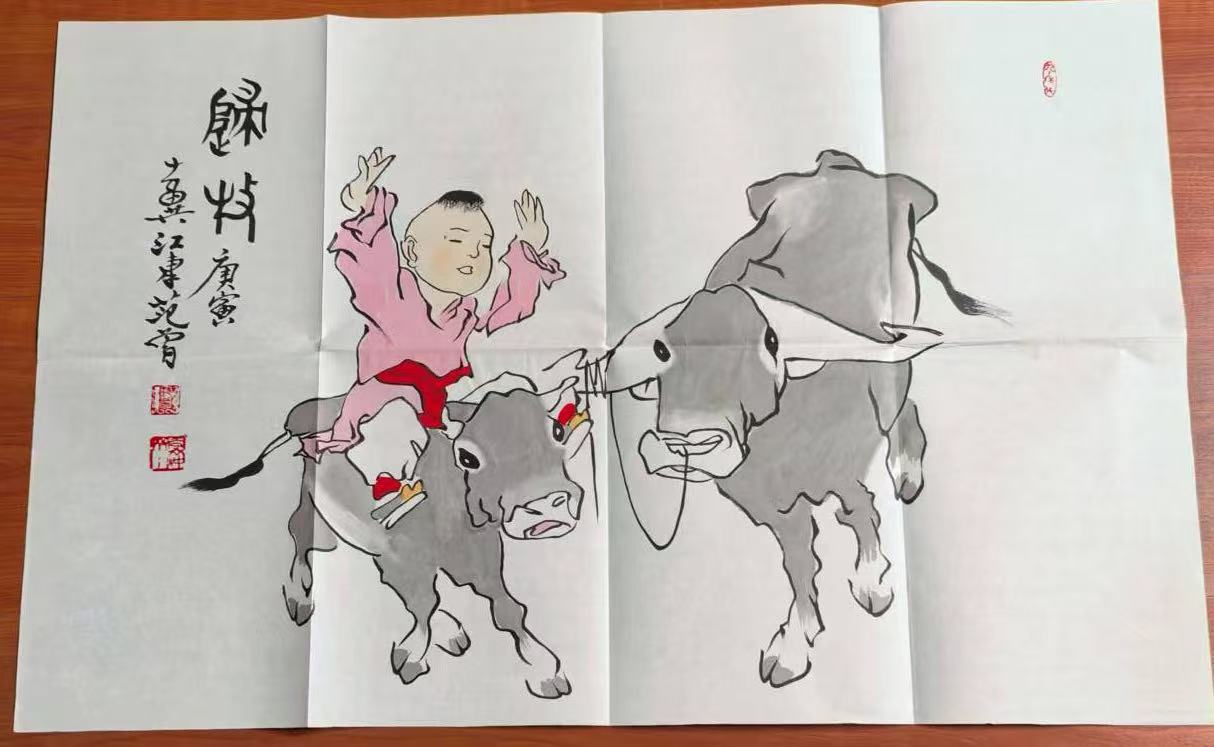 歸牧 庚寅
十翼江東范曾